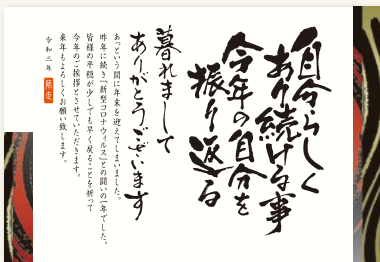 自分らしく
あり続ける事
今年の自分を
振り返る
暮れまして
ありがとうございます
あっという間に年末を迎えてしまいました。
昨年に続き『新型コロナウイルス』との闘いの一年でした。
皆様の平穏が少しでも早く戻ることを祈って
今年のご挨拶とさせていただきます。
来年もよろしくお願い致します。
令和三年 師走